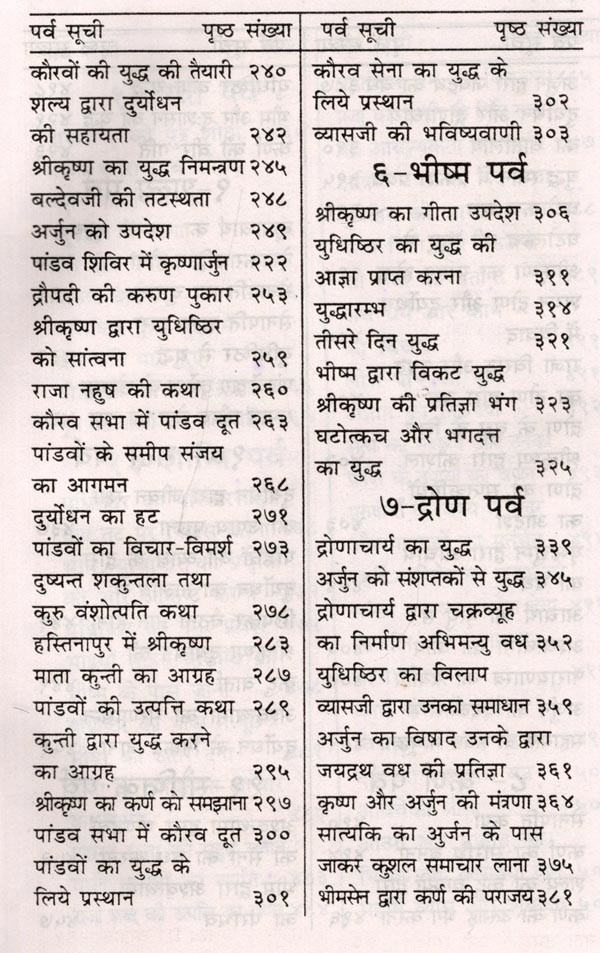 पर्व सूची पृष्ठ संख्या
कौरवों की युद्ध की तैयारी २४०
शल्य द्वारा दुर्योधन
की सहायता २४२
श्रीकृष्ण का युद्ध निमन्त्रण २४५
बल्देवजी की तटस्थता २४८
अर्जुन को उपदेश २४९
पांडव शिविर में कृष्णार्जुन २२२
द्रौपदी की करुण पुकार २५३
श्रीकृष्ण द्वारा युधिष्ठिर
को सांत्वना २५९
राजा नहुष की कथा २६०
कौरव सभा में पांडव दूत २६३
पांडवों के समीप संजय
का आगमन २६८
दुर्योधन का हट २७१
पांडवों का विचार-विमर्श २७३
दुष्यन्त शकुन्तला तथा
कुरु वंशोत्पति कथा २७८
हस्तिनापुर में श्रीकृष्ण २८३
माता कुन्ती का आग्रह २८७
पांडवों की उत्पत्ति कथा २८९
कुन्ती द्वारा युद्ध करने
का आग्रह २९५
श्रीकृष्ण का कर्ण को समझाना २९७
पांडव सभा में कौरव दूत ३००
पांडवों का युद्ध के
लिये प्रस्थान ३०१
पर्व सूची पृष्ठ संख्या
कौरव सेना का युद्ध के
लिये प्रस्थान ३०२
व्यासजी की भविष्यवाणी ३०३
६-भीष्म पर्व
श्रीकृष्ण का गीता उपदेश ३०६
युधिष्ठिर का युद्ध की
आज्ञा प्राप्त करना ३११
युद्धारम्भ ३१४
तीसरे दिन युद्ध ३२१
भीष्म द्वारा विकट युद्ध
श्रीकृष्ण की प्रतिज्ञा भंग ३२३
घटोत्कच और भगदत्त
का युद्ध ३२५
७-द्रोण पर्व
द्रोणाचार्य का युद्ध ३३९
अर्जुन को संशप्तकों से युद्ध ३४५
द्रोणाचार्य द्वारा चक्रव्यूह
का निर्माण अभिमन्यु वध ३५२
युधिष्ठिर का विलाप
व्यासजी द्वारा उनका समाधान ३५९
अर्जुन का विषाद उनके द्वारा
जयद्रथ वध की प्रतिज्ञा ३६१
कृष्ण और अर्जुन की मंत्रणा ३६४
सात्यकि का अुर्जन के पास
जाकर कुशल समाचार लाना ३७५
भीमसेन द्वारा कर्ण की पराजय ३८१